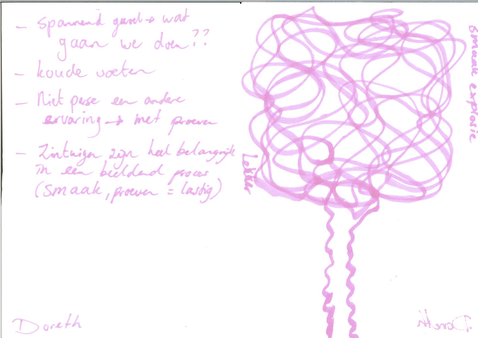 - Spannend gevoel → wat
gaan we doen??
- koude voeten
- Niet perse een andere
ervaring → met proeven
- Zintuigen zijn heel belangrijk
in een beeldend proces
(smaak, proeven = lastig)
Doreth
smaak explosie
Lekker
Doreth